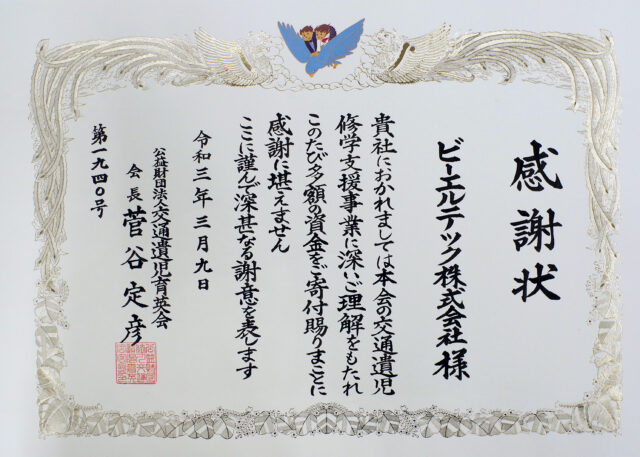 感謝状
ビーエルテック株式会社様
貴社におかれましては本会の交通遺児
修学支援事業に深いご理解をもたれ
このたび多額の資金をご寄付賜りまことに
感謝に堪えません
ここに謹んで深甚なる謝意を表します
令和三年三月九日
公益財団法人交通遺児育英会
会長 菅谷定彦
第一九四〇号